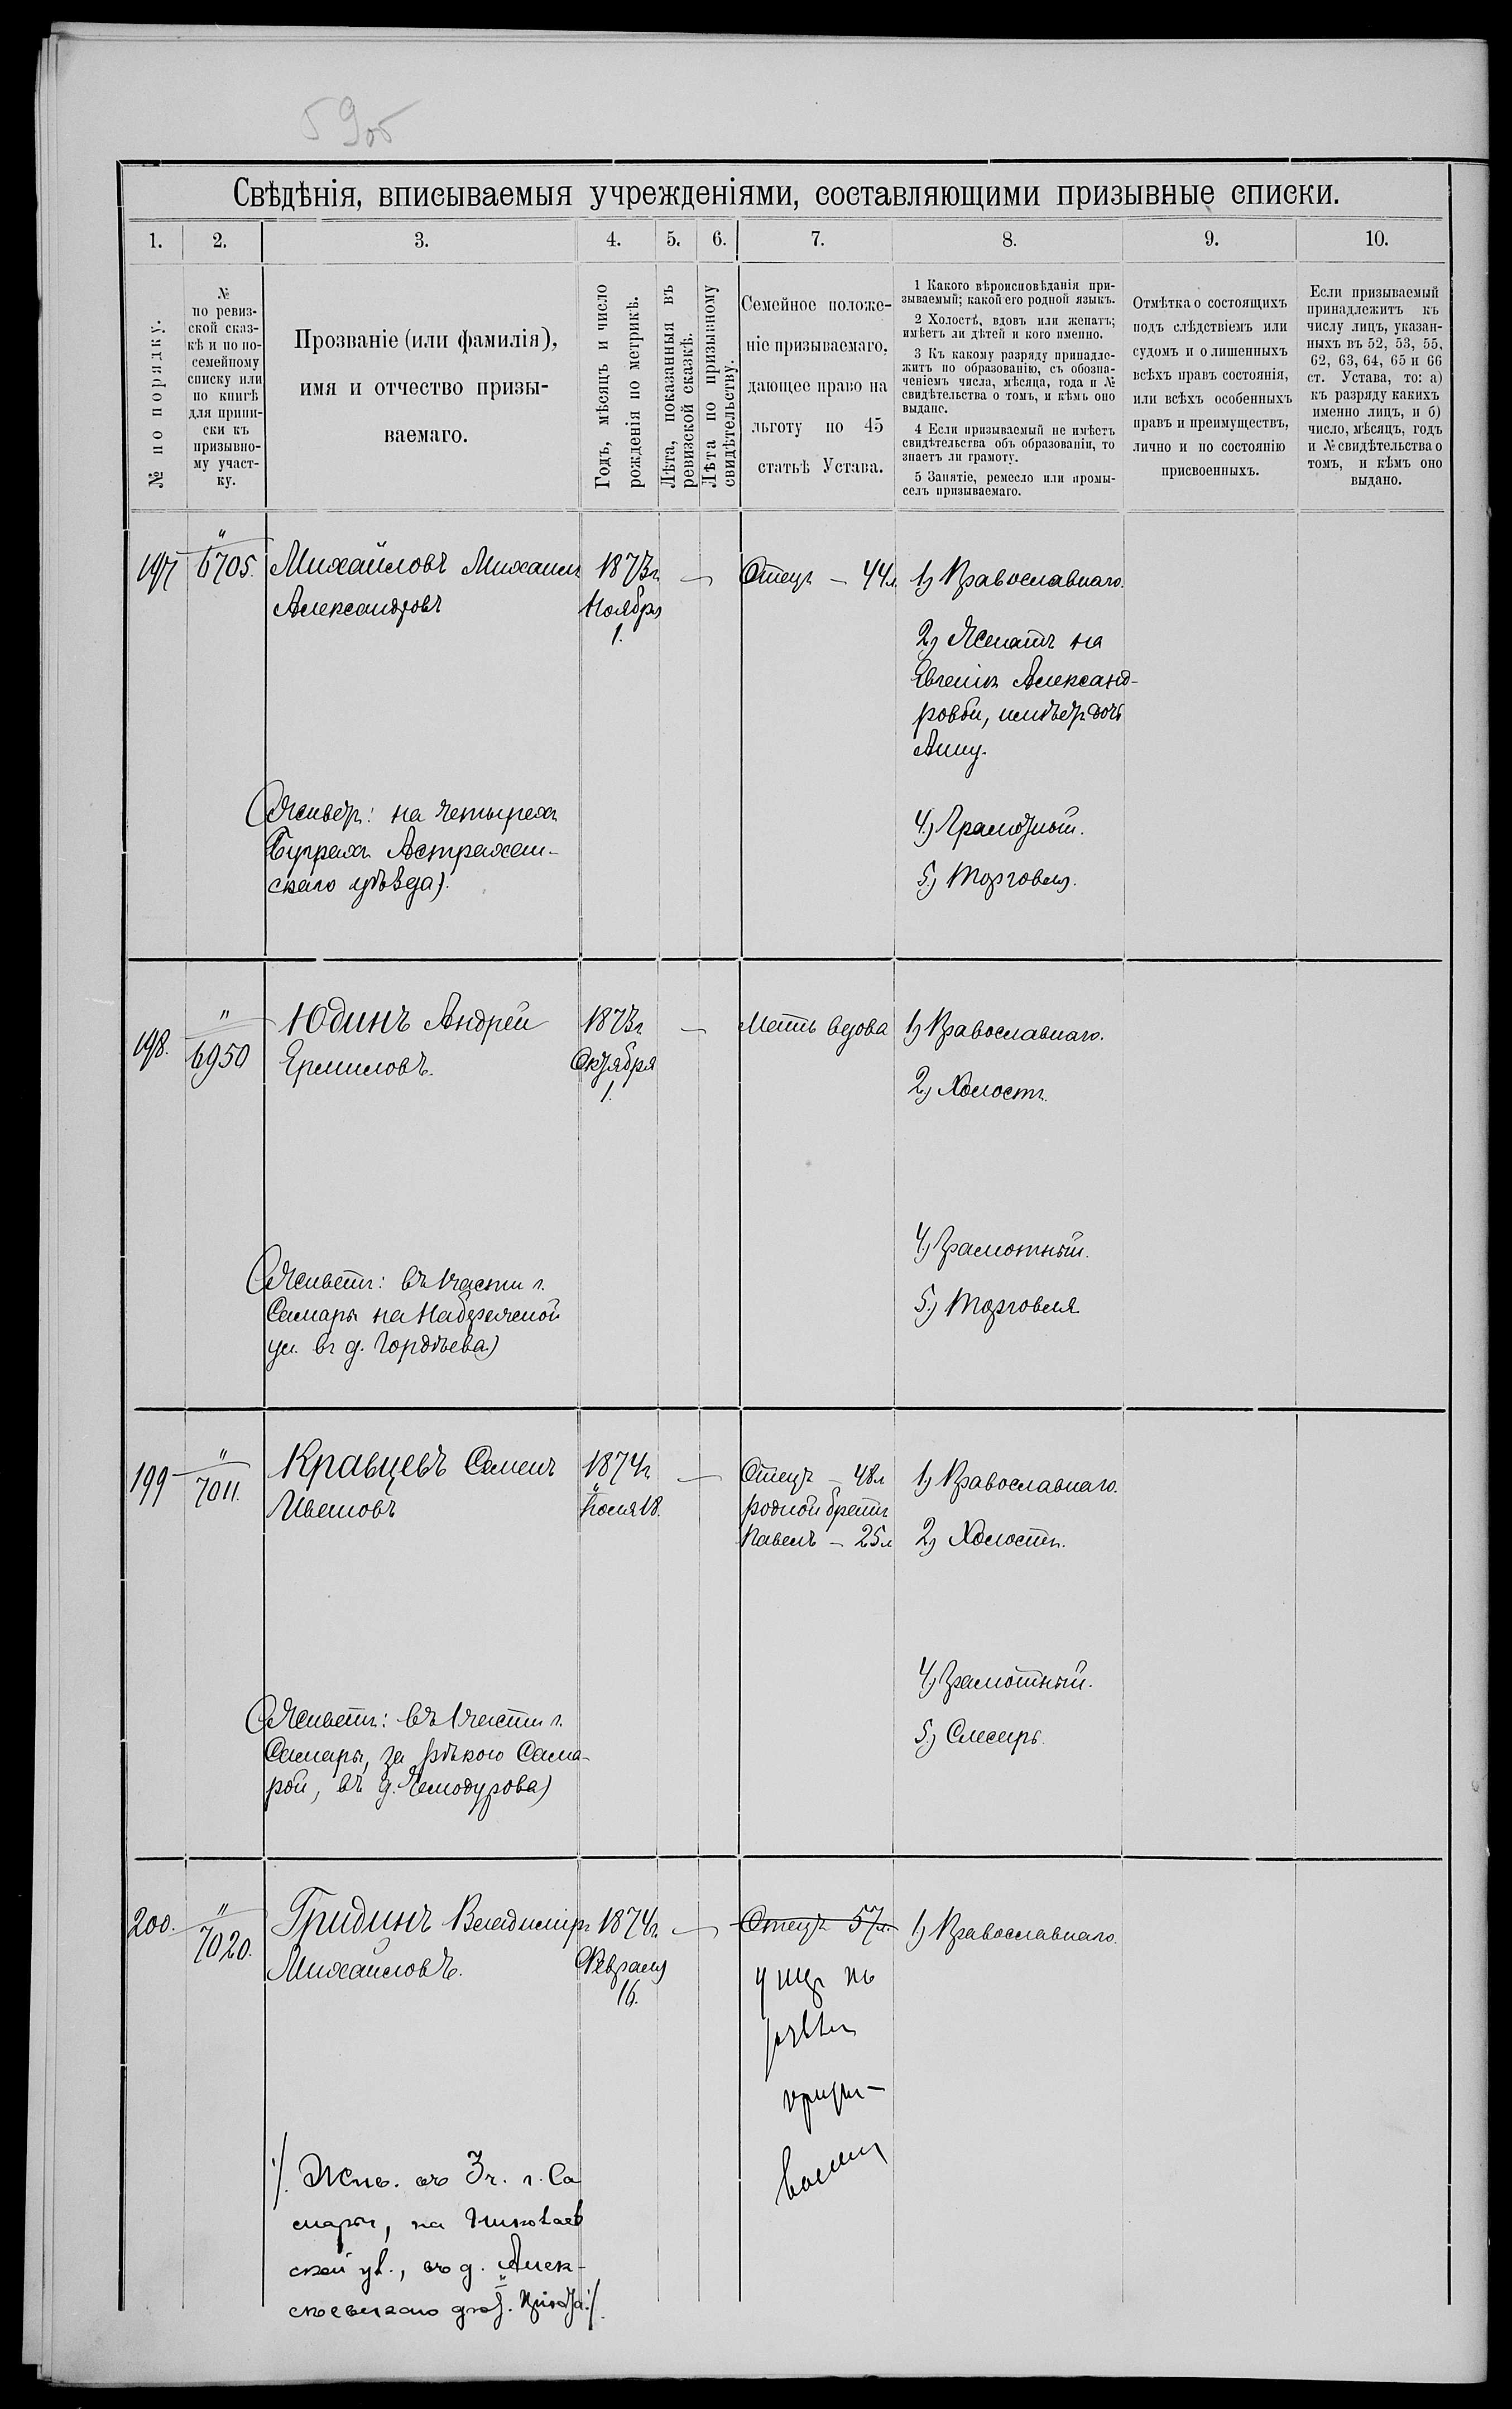 59об
Свѣдѣнія, вписываемыя учрежденіями, составляющими призывные списки.
1. 2. 3. 4. 5. 6. 7. 8. 9. 10.
№ по порядку.
№
по ревиз-
ской сказ-
кѣ и по по-
семейному
списку или
по книгѣ
для припи-
ски къ
призывно-
му участ-
ку.
Прозваніе (или фамилія),
имя и отчество призы-
ваемаго.
Годъ, мѣсяцъ и число
рожденія по метрикѣ.
Лѣта, показанныя въ
ревизской сказкѣ.
Лѣта по призывному
свидѣтельству.
Семейное положе-
ніе призываемаго,
дающее право на
льготу по 45
статьѣ Устава.
1 Какого вѣроисповѣданія при-
зываемый; какой его родной языкъ.
2 Холостъ, вдовъ или женатъ;
имѣетъ ли дѣтей и кого именно.
3 Къ какому разряду принадле-
житъ по образованію, съ обозна-
ченіемъ числа, мѣсяца, года и №
свидѣтельства о томъ, и кѣмъ оно
выдано.
4 Если призываемый не имѣетъ
свидѣтельства объ образованіи, то
знаетъ ли грамоту.
5 Занятіе, ремесло или промы-
селъ призываемаго.
Отмѣтка о состоящихъ
подъ слѣдствіемъ или
судомъ и о лишенныхъ
всѣхъ правъ состоянія,
или всѣхъ особенныхъ
правъ и преимуществъ,
лично и по состоянію
присвоенныхъ.
Если призываемый
принадлежитъ къ
числу лицъ, указан-
ныхъ въ 52, 53, 55,
62, 63, 64, 65 и 66
ст. Устава, то: а)
къ разряду какихъ
именно лицъ, и б)
число, мѣсяцъ, годъ
и № свидѣтельства о
томъ, и кѣмъ оно
выдано.
197
"
6705.
Михайловъ Михаилъ
Александровъ
(Живетъ: на Четырехъ
Буграхъ Астрахан-
скаго уѣзда).
1873г.
Ноября
1.
—
Отецъ – 44л.
1) Православнаго.
2) Женатъ на
Евгеніи Александ-
ровой, имѣетъ дочь
Анну.
4) Грамотный.
5) Торговля.
198.
"
6950
Юдинъ Андрей
Ермиловъ.
(Живетъ: въ 1 части г.
Самары на Набережной
ул. въ д. Гордѣева)
1873г.
Октября
1.
—
Мать вдова
1) Православнаго.
2) Холостъ.
4) Грамотный.
5) Торговля
199
"
7011.
Кравцевъ Семенъ
Ивановъ
(Живетъ: въ 1 части г.
Самары, за рѣкою Сама-
рой, въ д. Чемодурова)
1874г.
Іюля 18.
—
Отецъ – 48л
родной братъ
Павелъ – 25л
1) Православнаго.
2) Холостъ.
4) Грамотный.
5) Слесарь.
200.
"
7020.
Гридинъ Владиміръ
Михайловъ.
/. Жив. въ 3 ч. г. Са
мары, на Николаев
ской ул., въ д. Алек-
сѣевскаго дѣт. Пріюта./.
1874г.
Февраля
16.
—
Отецъ 57л.
1) Православнаго.